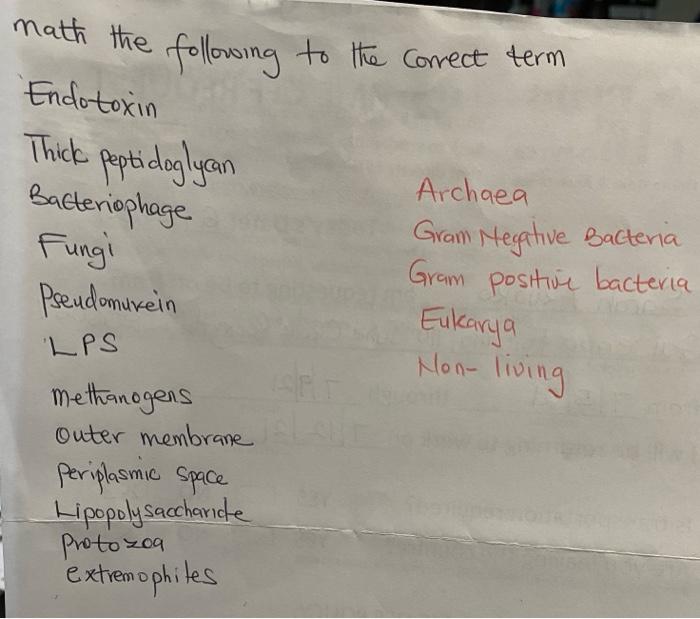 math the following to the correct term
Endotoxin
Thick peptidoglycan
Bacteriophage
Fungi
Pseudomurein
LPS
methanogens
outer membrane
periplasmic space
Lipopolysaccharide
protozoa
extremophiles
Archaea
Gram Negative Bacteria
Gram positive bacteria
Eukarya
Non-living